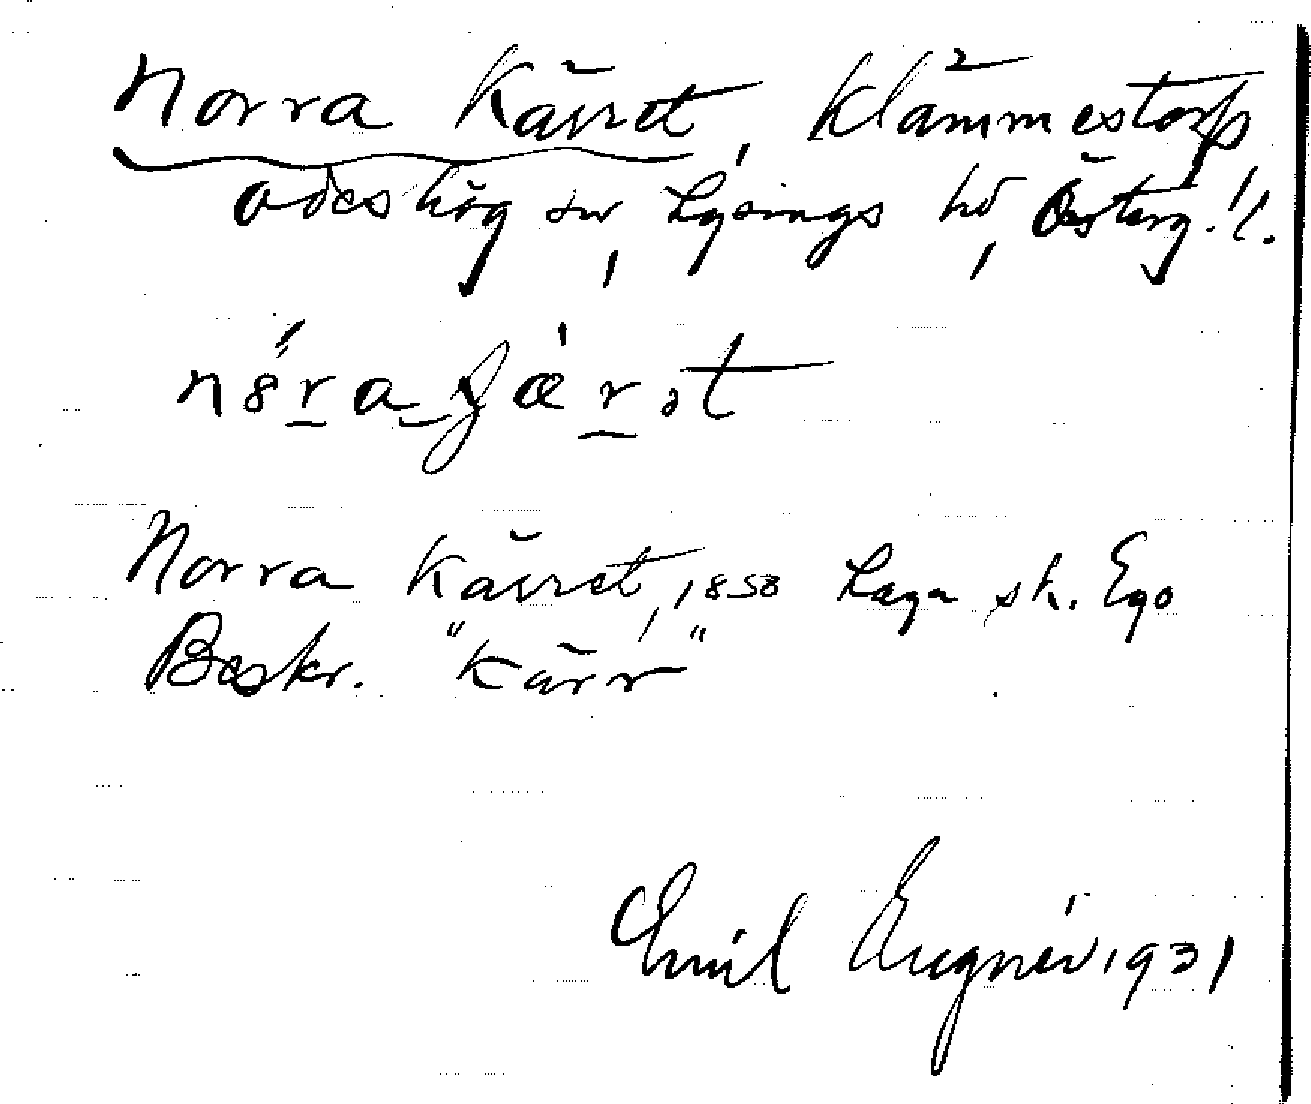 Norra Kärret, Klämmestorp
Ödeshög sn, Lysings hd, Österg. l.
Norra Kärret, 1858 Laga sk. Ego
Beskr. "Kärr"
Emil 1931